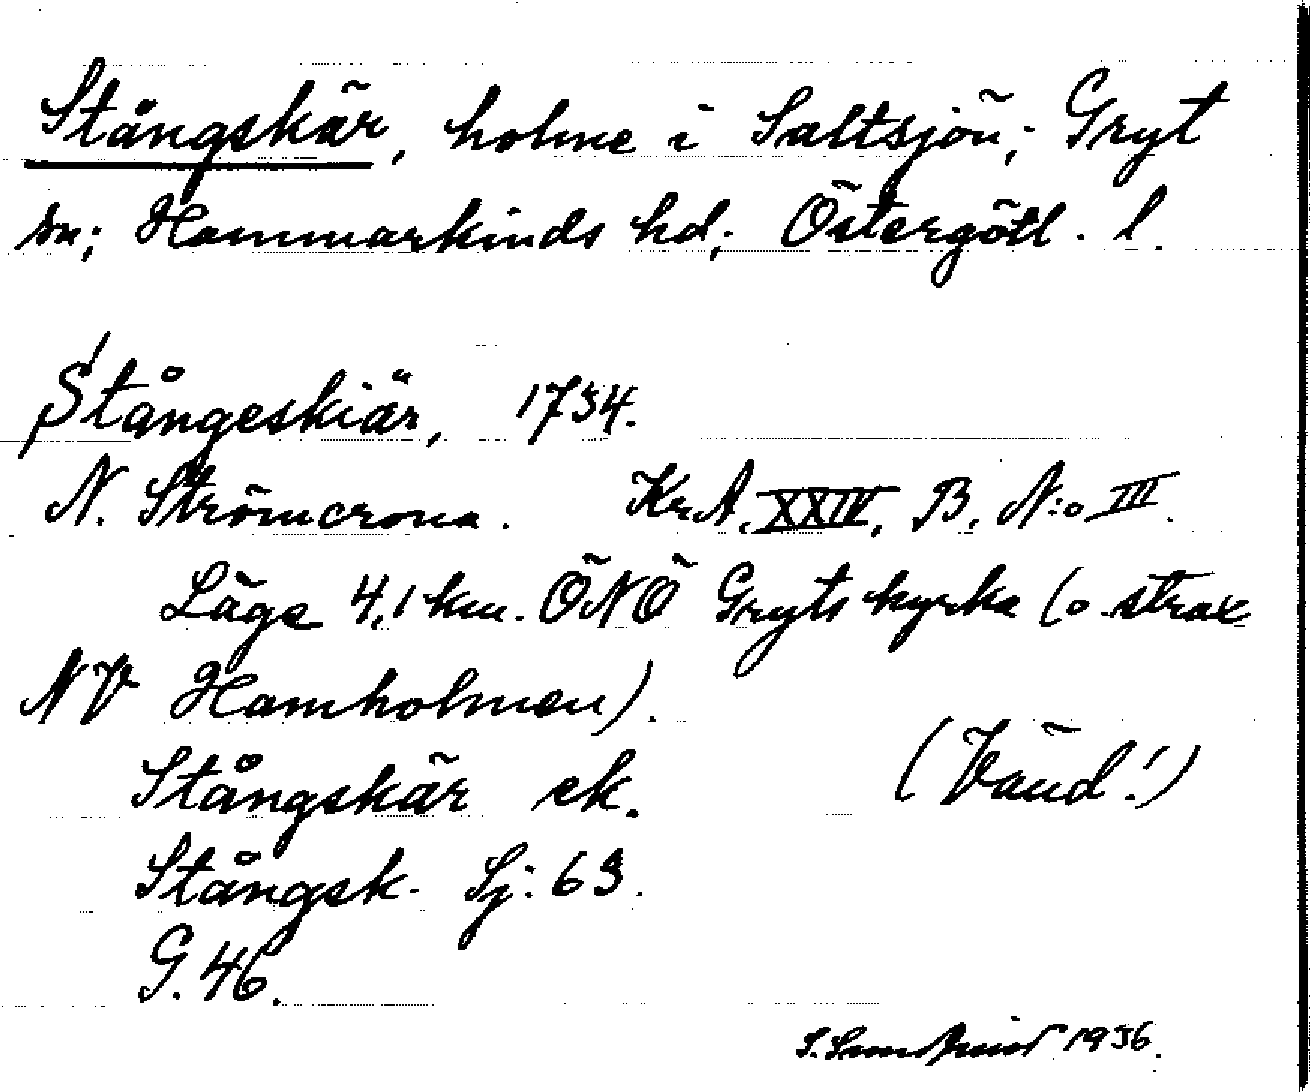 Stångskär, holme i Saltsjön; Gryt
sn; Hammarkinds hd; Östergötl. l.
Stångeskiär, 1734.
N. Strömcrona. KrA. XXIV, B, N:o III.
Läge 4,1 km. ÖNÖ Gryts kyrka (o strax
NV Hamholmen).
Stångskär ek. (Vänd!)
Stångsk. Sj: 63.
G. 46.
1936.